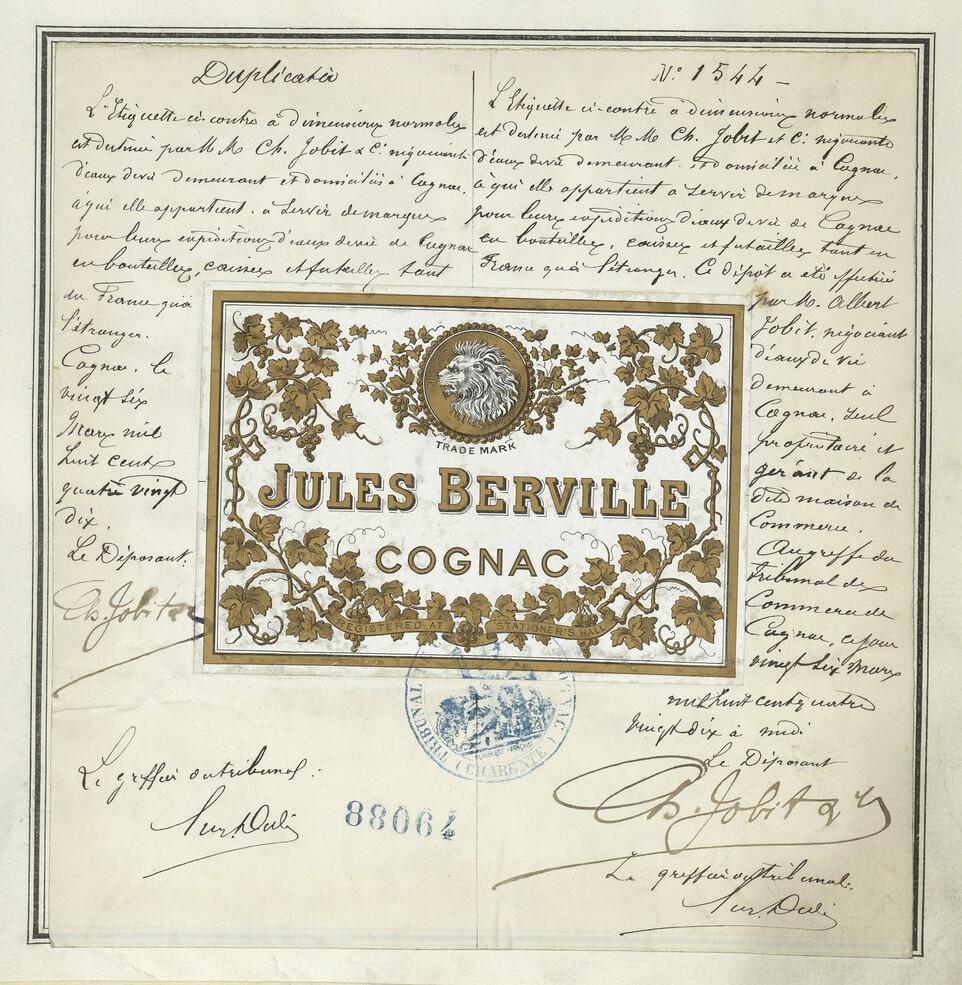 Duplicata
L'Etiquette ci-contre à dimensions normales
est destinée par M M Ch. Jobit & Cie négociants
d'eaux de vie demeurant et domiciliés à Cognac,
à qui elle appartient, à servir de marque
pour leurs expéditions d'eaux de vie de Cognac
en bouteilles, caisses et futailles tant
en France qu'à
l'étranger.
Cognac, le
vingt six
Mars mil
huit cent
quatre vingt
dix.
Le Déposant:
Ch. Jobit &
Le greffier du tribunal:
No 1544 –
L'Etiquette ci-contre à dimensions normales
est destinée par M M Ch. Jobit et Cie négociants
d'eaux de vie demeurant et domiciliés à Cognac,
à qui elle appartient à servir de marque
pour leurs expéditions d'eaux de vie de Cognac
en bouteilles, caisses et futailles tant en
France qu'à l'étranger. Ce dépôt a été effectué
par M. Albert
Jobit, négociant
d'eaux de vie
demeurant à
Cognac, seul
propriétaire et
gérant de la
dite maison de
Commerce.
Au greffe du
Tribunal de
Commerce de
Cognac, ce jour
vingt six Mars
mil huit cent quatre
vingt dix à midi
Le Déposant
Ch. Jobit &
Le greffier du tribunal:
TRADE MARK
JULES BERVILLE
COGNAC
REGISTERED AT STATIONER'S HALL
TRIBUNAL
(CHARENTE)
88064